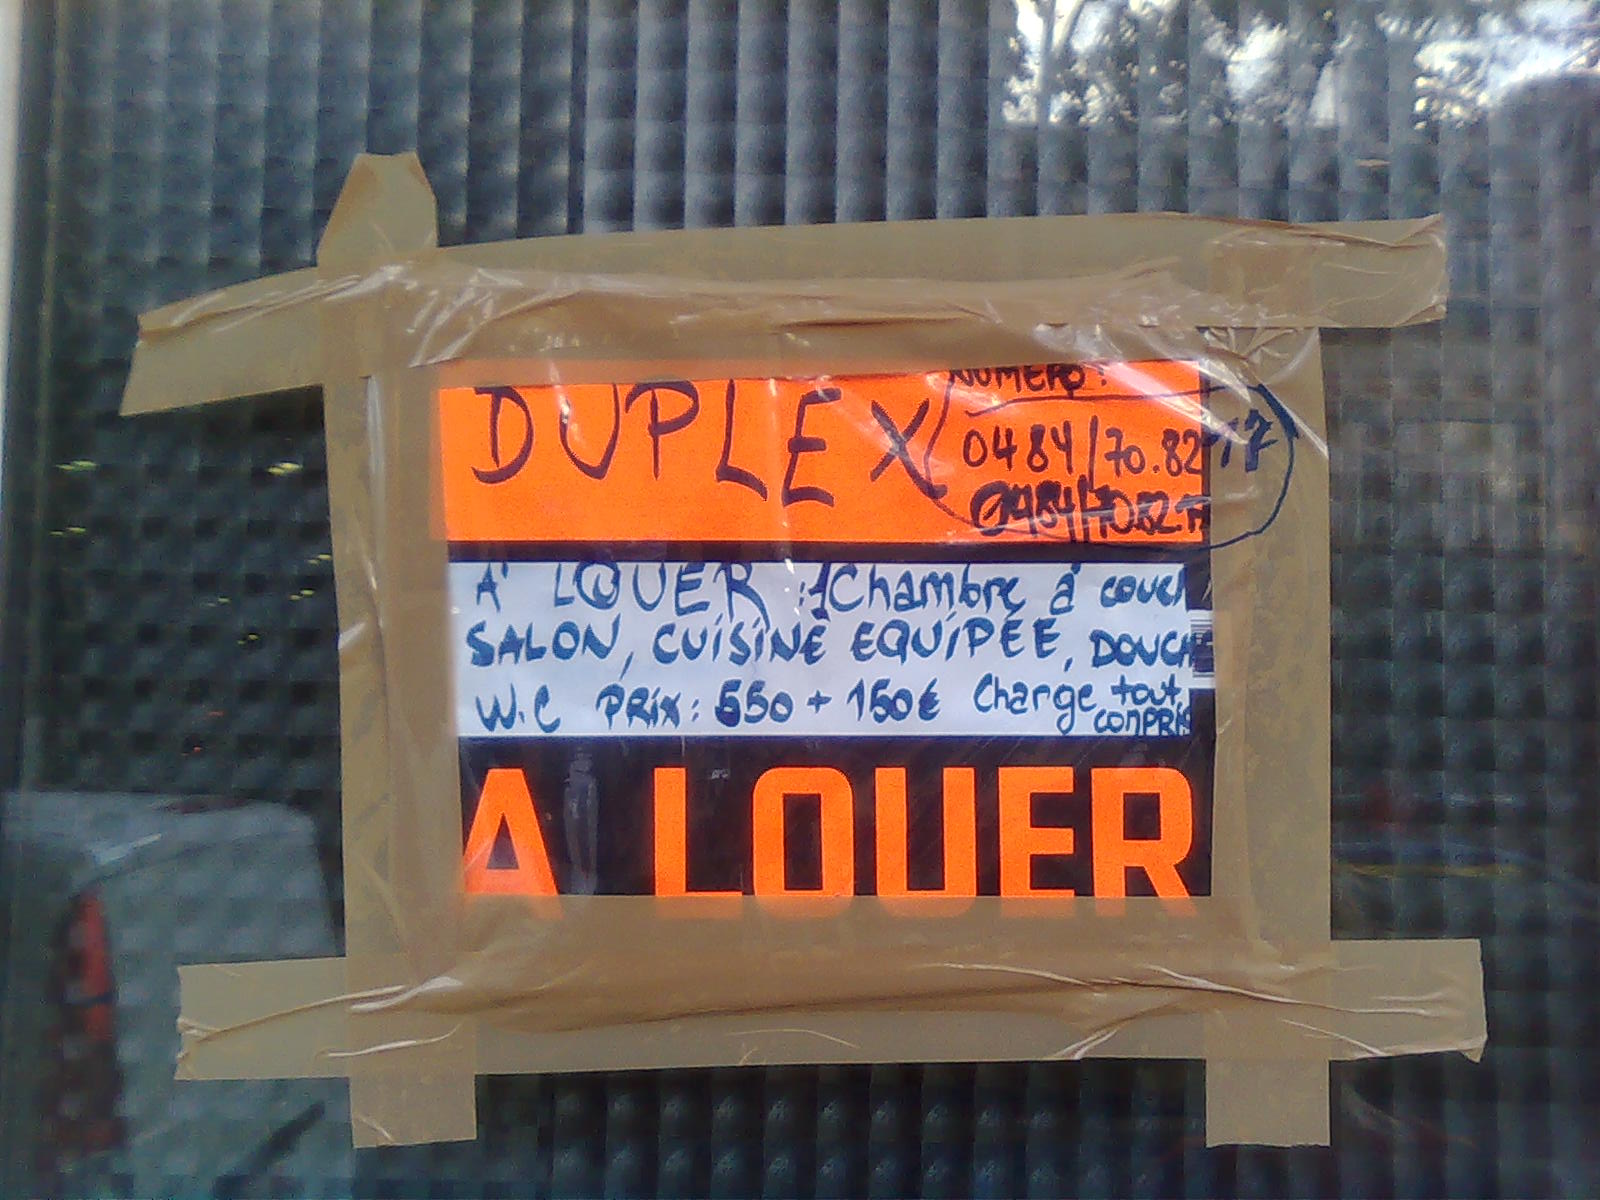 DUPLEX
NUMERO:
0484/70.82.17
0484/70.82.17
A' LOUER : 1 Chambre à couch
SALON, CUISINE EQUIPEE, DOUCHE
W.C PRIX: 550 + 150€ Charge tout
COMPRIS
A LOUER